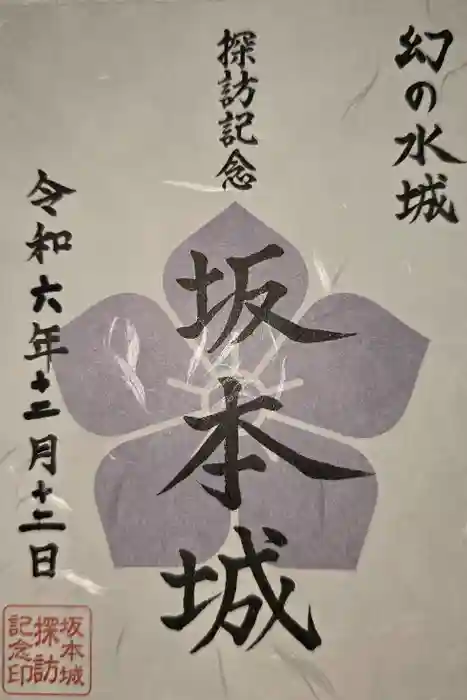 幻の水城
探訪記念
坂本城
令和六年十二月十二日
坂本城
探訪
記念印